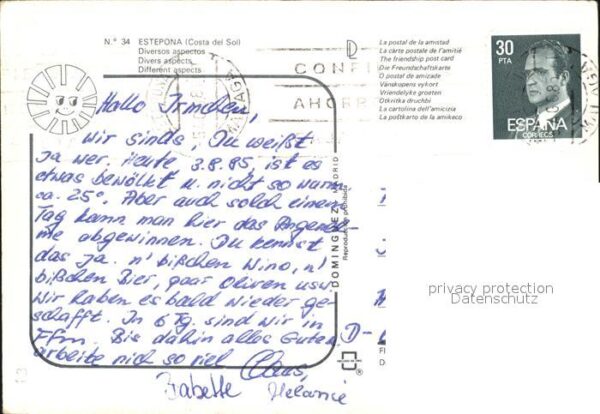 N.º 34 ESTEPONA (Costa del Sol)
Diversos aspectos
Divers aspects
Different aspects
La postal de la amistad
La carte postale de l'amitié
The friendship post card
Die Freundschaftskarte
O postal de amizade
Vänskapens vykort
Vriendelyke groeten
Otkritka druchbi
La cartolina dell'amicizia
La poŝtkarto de la amikeco
30
PTA
ESPAÑA
CORREOS
AHORR
Hallo Irmchen,
wir sinds, Du weißt
ja wer. Heute 3.8.85, ist es
etwas bewölkt u. nicht so warm
ca. 25°. Aber auch solch einem
Tag kann man hier das Angeneh-
me abgewinnen. Du kennst
das ja. n' bißchen Wino, n'
bißchen Bier, paar Oliven usw.
Wir haben es bald wieder ge-
schafft. In 6 Tg. sind wir in
Ffm. Bis dahin alles Gute,
arbeite nich so viel Claus,
Babette Melanie
DOMINGUEZ
MADRID
Reproducción prohibida
D-
privacy protection
Datenschutz